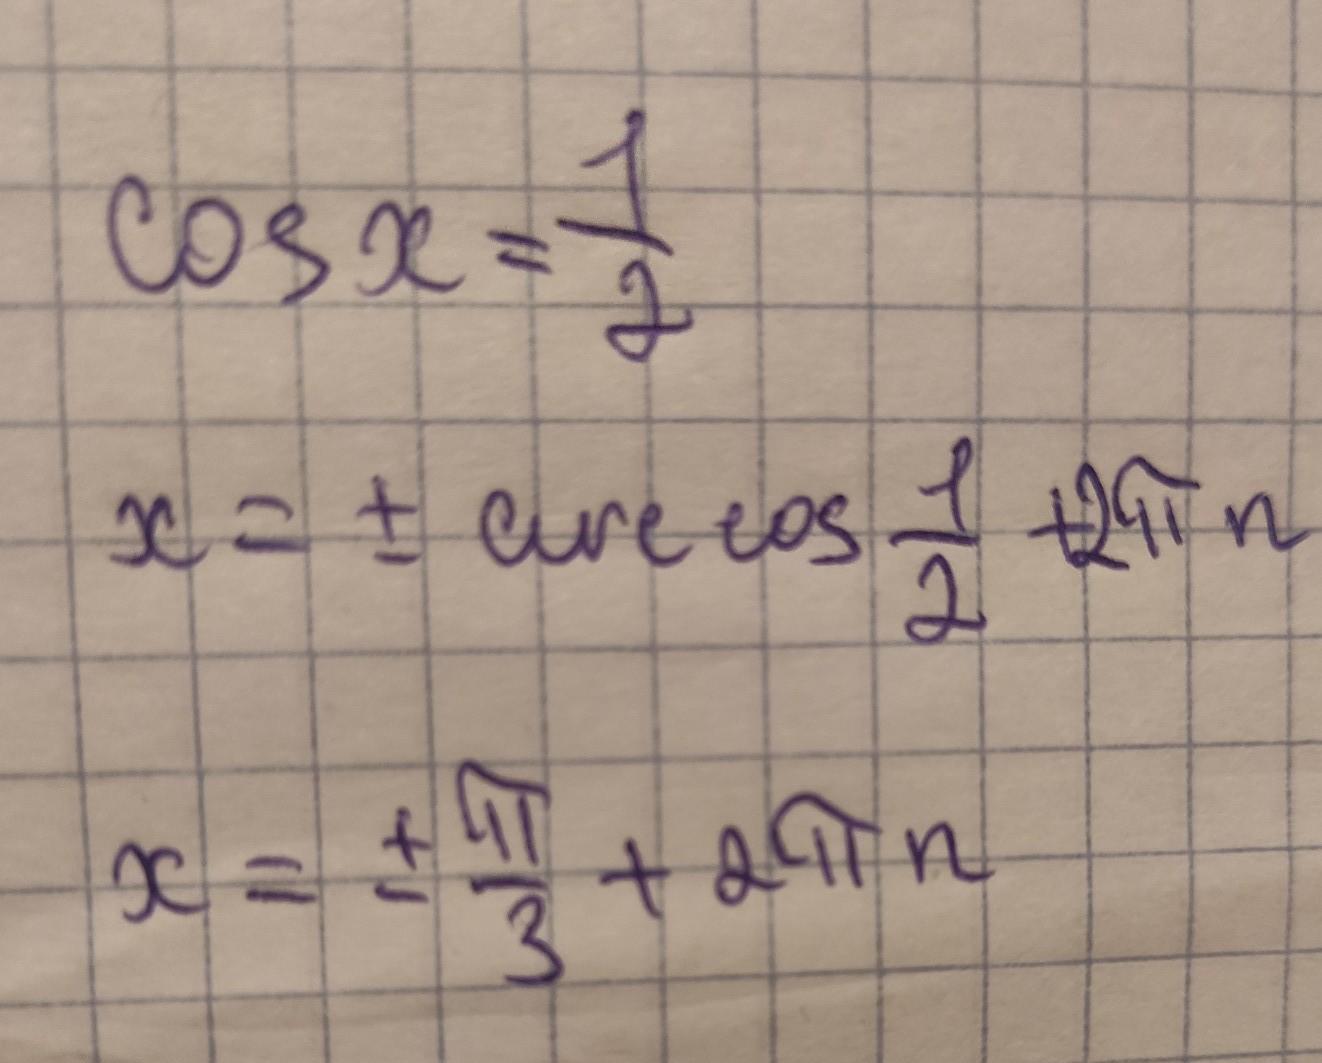 cos x = 1/2
x = ± arccos 1/2 + 2π n
x = ± π/3 + 2π n